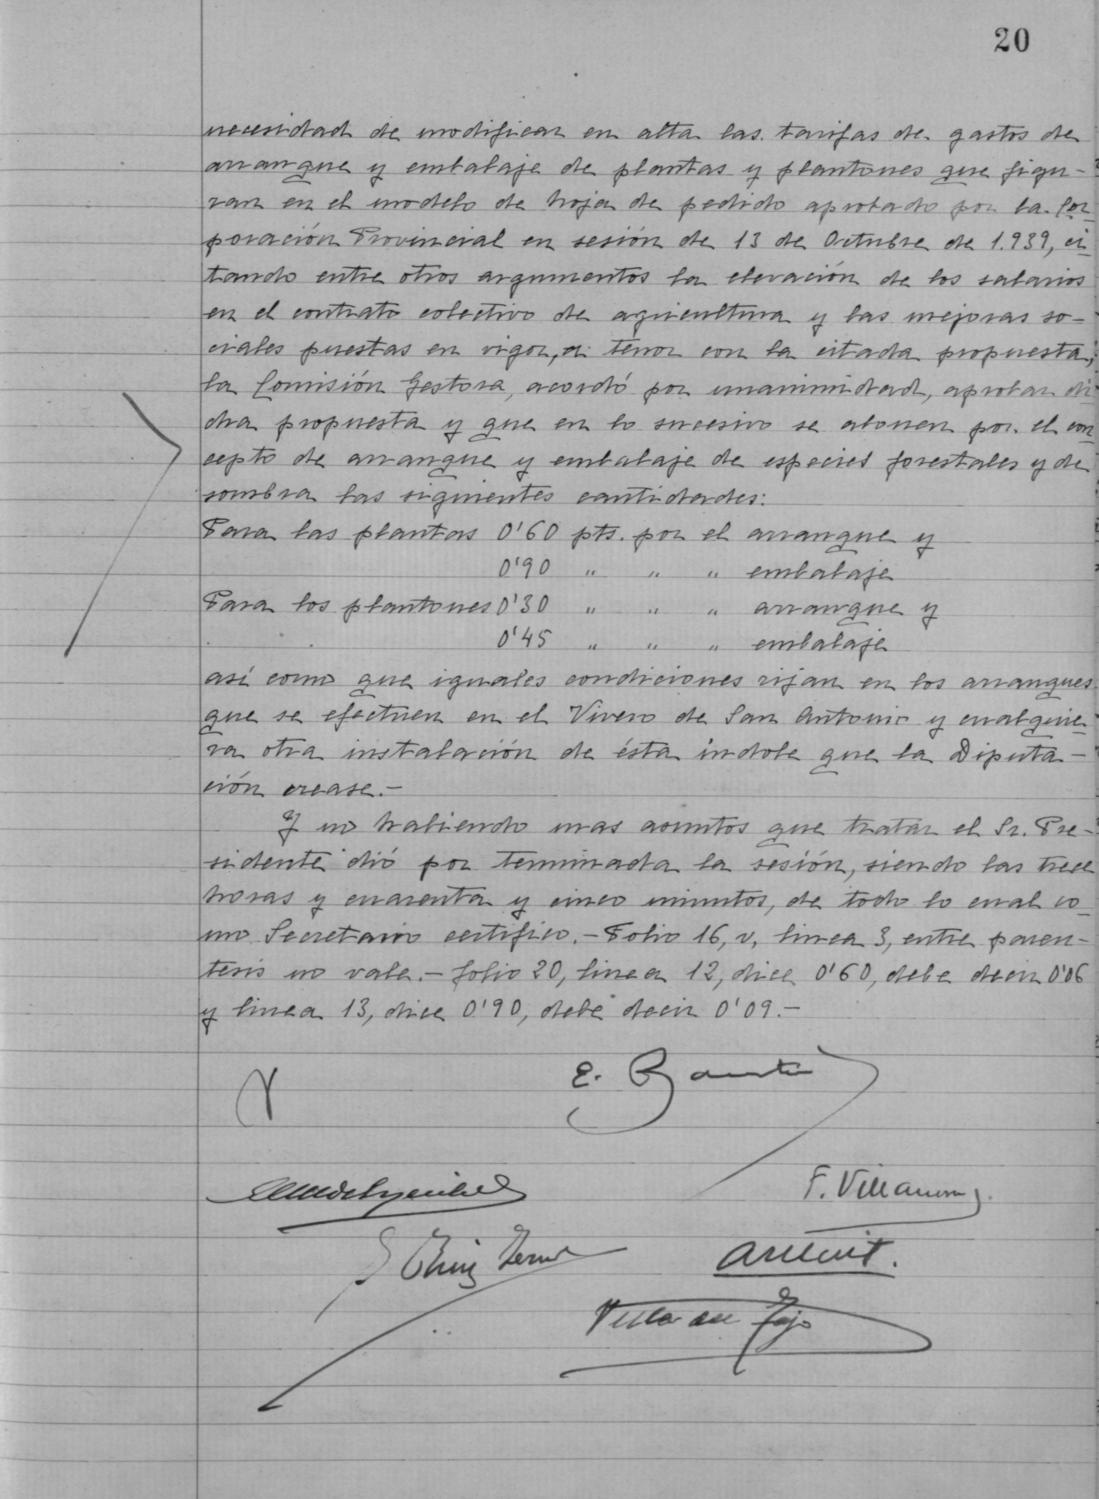 20
necesidad de modificar en alta las tarifas de gastos de
arranque y embalaje de plantas y plantones que figu-
ran en el modelo de hoja de pedido aprobado por la Cor
poración Provincial en sesión de 13 de Octubre de 1.939, ci
tando entre otros argumentos la elevación de los salarios
en el contrato colectivo de agricultura y las mejoras so-
ciales puestas en vigor, a tenor con la citada propuesta,
la Comisión Gestora, acordó por unanimidad, aprobar di
cha propuesta y que en lo sucesivo se abonen por el con
cepto de arranque y embalaje de especies forestales y de
sombra las siguientes cantidades:
Para las plantas 0'60 pts. por el arranque y
0'90 " " " embalaje
Para los plantones 0'30 " " " arranque y
0'45 " " " embalaje
así como que iguales condiciones rijan en los arranques
que se efectuen en el Vivero de San Antonio y cualquie
ra otra instalación de ésta índole que la Diputa-
ción crease.-
Y no habiendo mas asuntos que tratar el Sr. Pre-
sidente dió por terminada la sesión, siendo las trece
horas y cuarenta y cinco minutos, de todo lo cual co-
mo Secretario certifico.- Folio 16, v, linea 3, entre paren-
tesis no vale.- folio 20, linea 12, dice 0'60, debe decir 0'06
y linea 13, dice 0'90, debe decir 0'09.-
E.
F. Villanueva